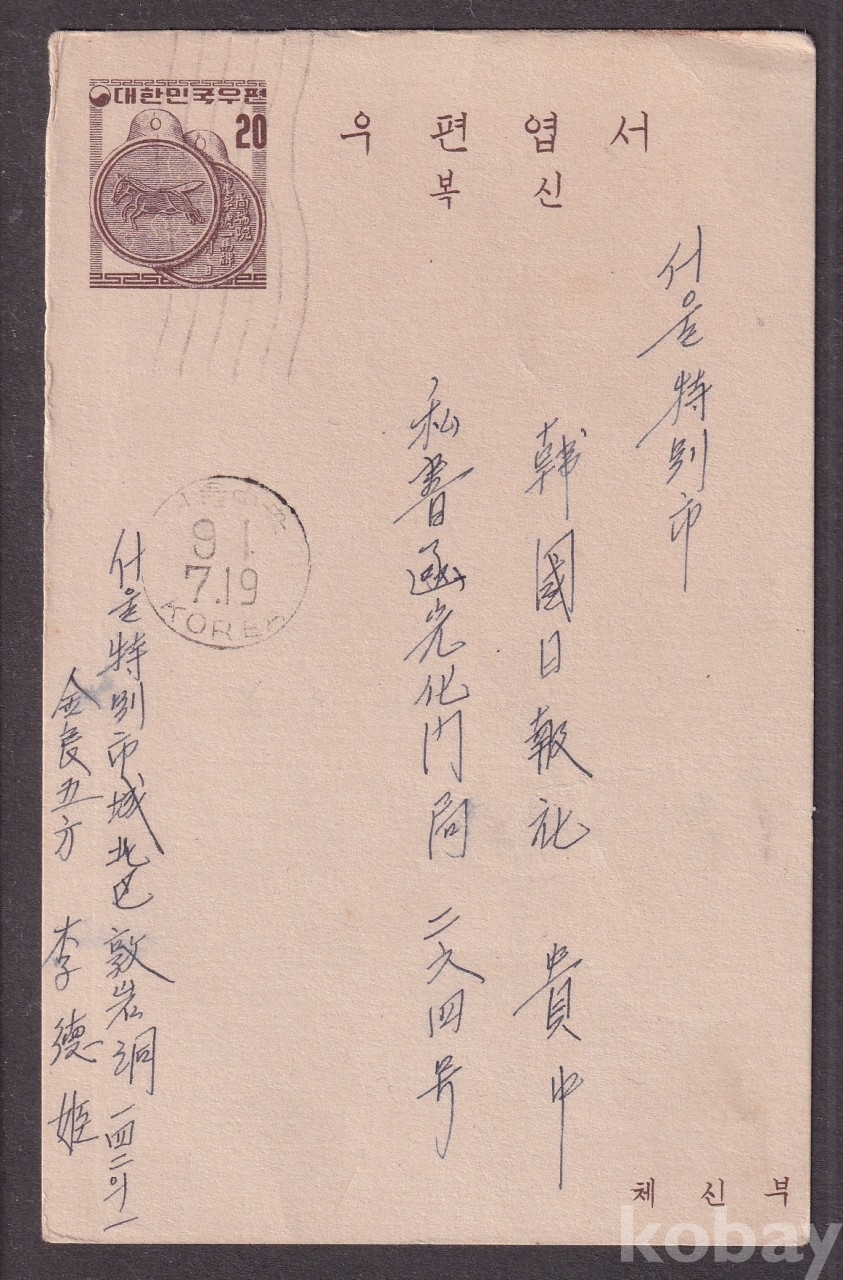 대한민국우편
20
우편엽서
복신
서울特別市
韓國日報社 貴中
私書函光化門局 二六四号
91
7.19
KOREA
서울特別市城北区敦岩洞 一四二의一
金良五方 李德姬
체신부
kobay